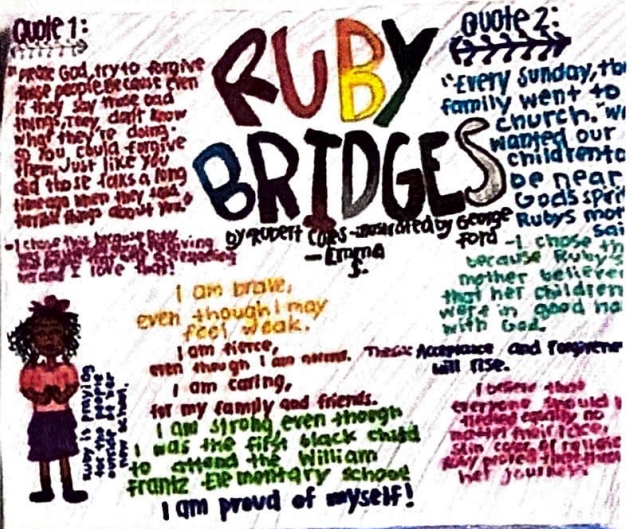 Quote 1:
"Please God, try to forgive
those people. Because even
if they say those bad
things, They don't know
what they're doing.
So You could forgive
them, Just like You
did those folks a long
time ago when they said
terrible things about you."
-I chose this because Ruby
forgiving
and I love that!
RUBY
BRIDGES
by Robert Coles -illustrated by George
Ford
-Emma
S.
Quote 2:
"Every Sunday, the
family went to
church. "We
wanted our
children to
be near
God's spirit
Rubys mot
sai
-I chose th
because Ruby's
mother believe
that her children
were in good ha
with God.
I am brave,
even though I may
feel weak.
I am fierce,
even though I am nervous.
I am caring,
for my family and friends.
I am strong even though
I was the first black child
to attend the William
frantz Elementary school
I am proud of myself!
Thesis: Acceptance and Forgivene
will rise.
I believe that
everyone should b
treated equally no
matter their race,
skin color or religion
Ruby proved that
her journey
Ruby is praying
for the people
outside of her
new school.